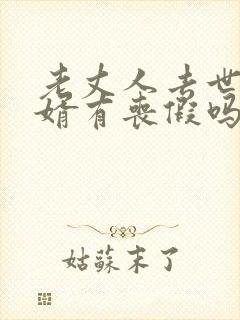 老丈人去世
婿有丧假吗
姑蘇末了